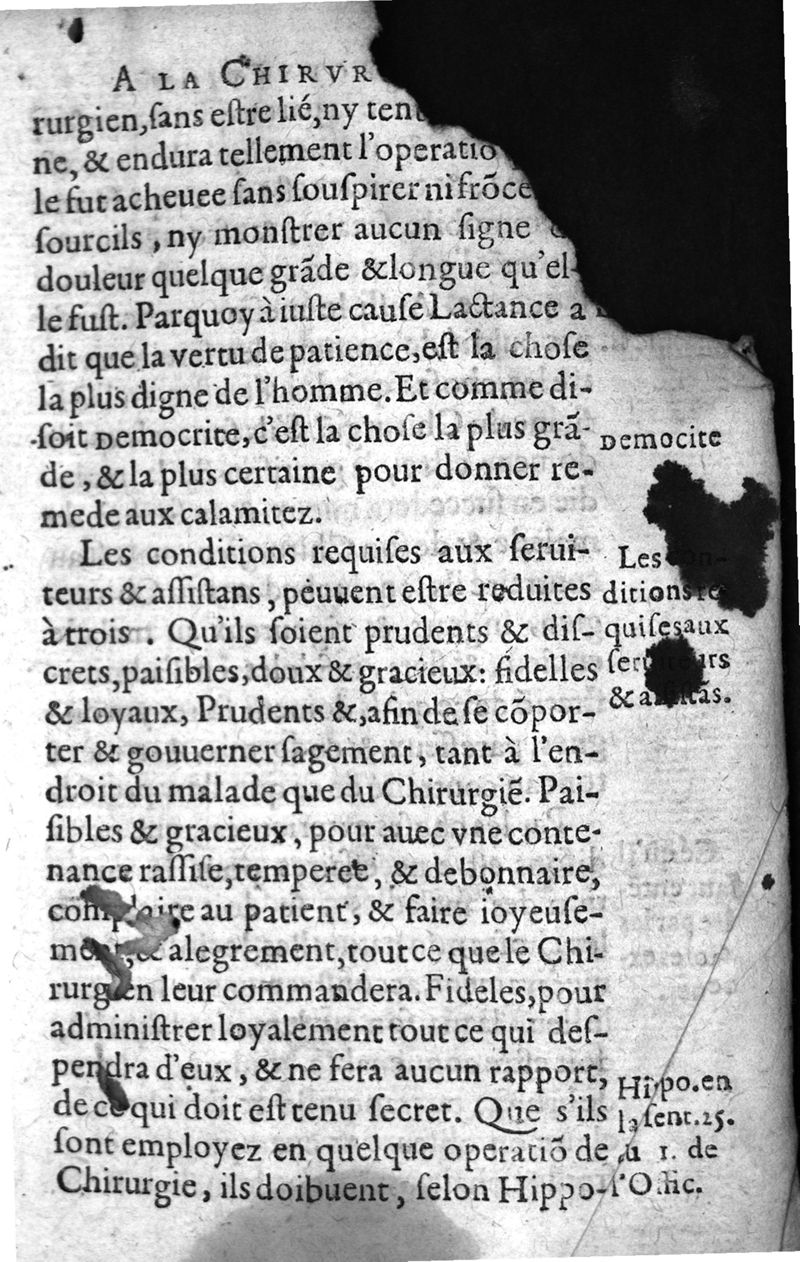 A LA CHIRVR
rurgien, ſans eſtre lié, ny
ne, & endura tellement l'operatiõ
le fut acheuee ſans ſouſpirer ni frõce
ſourcils, ny monſtrer aucun ſigne
douleur quelque grãde & longue qu'el-
le fuſt. Parquoy à iuſte cauſe Lactance a
dit que la vertu de patience, eſt la choſe
la plus digne de l'homme. Et comme di-
ſoit Democrite, c'eſt la choſe la plus grã-
de, & la plus certaine pour donner re-
mede aux calamitez.
Les conditions requiſes aux ſerui-
teurs & aſſiſtans, peuuent eſtre reduites
à trois. Qu'ils ſoient prudents & diſ-
crets, paiſibles, doux & gracieux: fidelles
& loyaux, Prudents &, afin de ſe cõpor-
ter & gouuerner ſagement, tant à l'en-
droit du malade que du Chirurgiẽ. Pai-
ſibles & gracieux, pour auec vne conte-
nance raſſiſe, temperee, & debonnaire,
complaire au patient, & faire ioyeuſe-
ment, & alegrement, tout ce que le Chi-
rurgien leur commandera. Fideles, pour
adminiſtrer loyalement tout ce qui deſ-
pendra d'eux, & ne fera aucun rapport,
de ce qui doit eſt tenu ſecret. Que s'ils
ſont employez en quelque operatiõ de
Chirurgie, ils doibuent, ſelon Hippo-
Democite
Les con-
ditions re
quiſes aux
ſeruiteurs
& aſſiſtãs.
Hippo. en
la ſent. 25.
du 1. de
l'Offic.